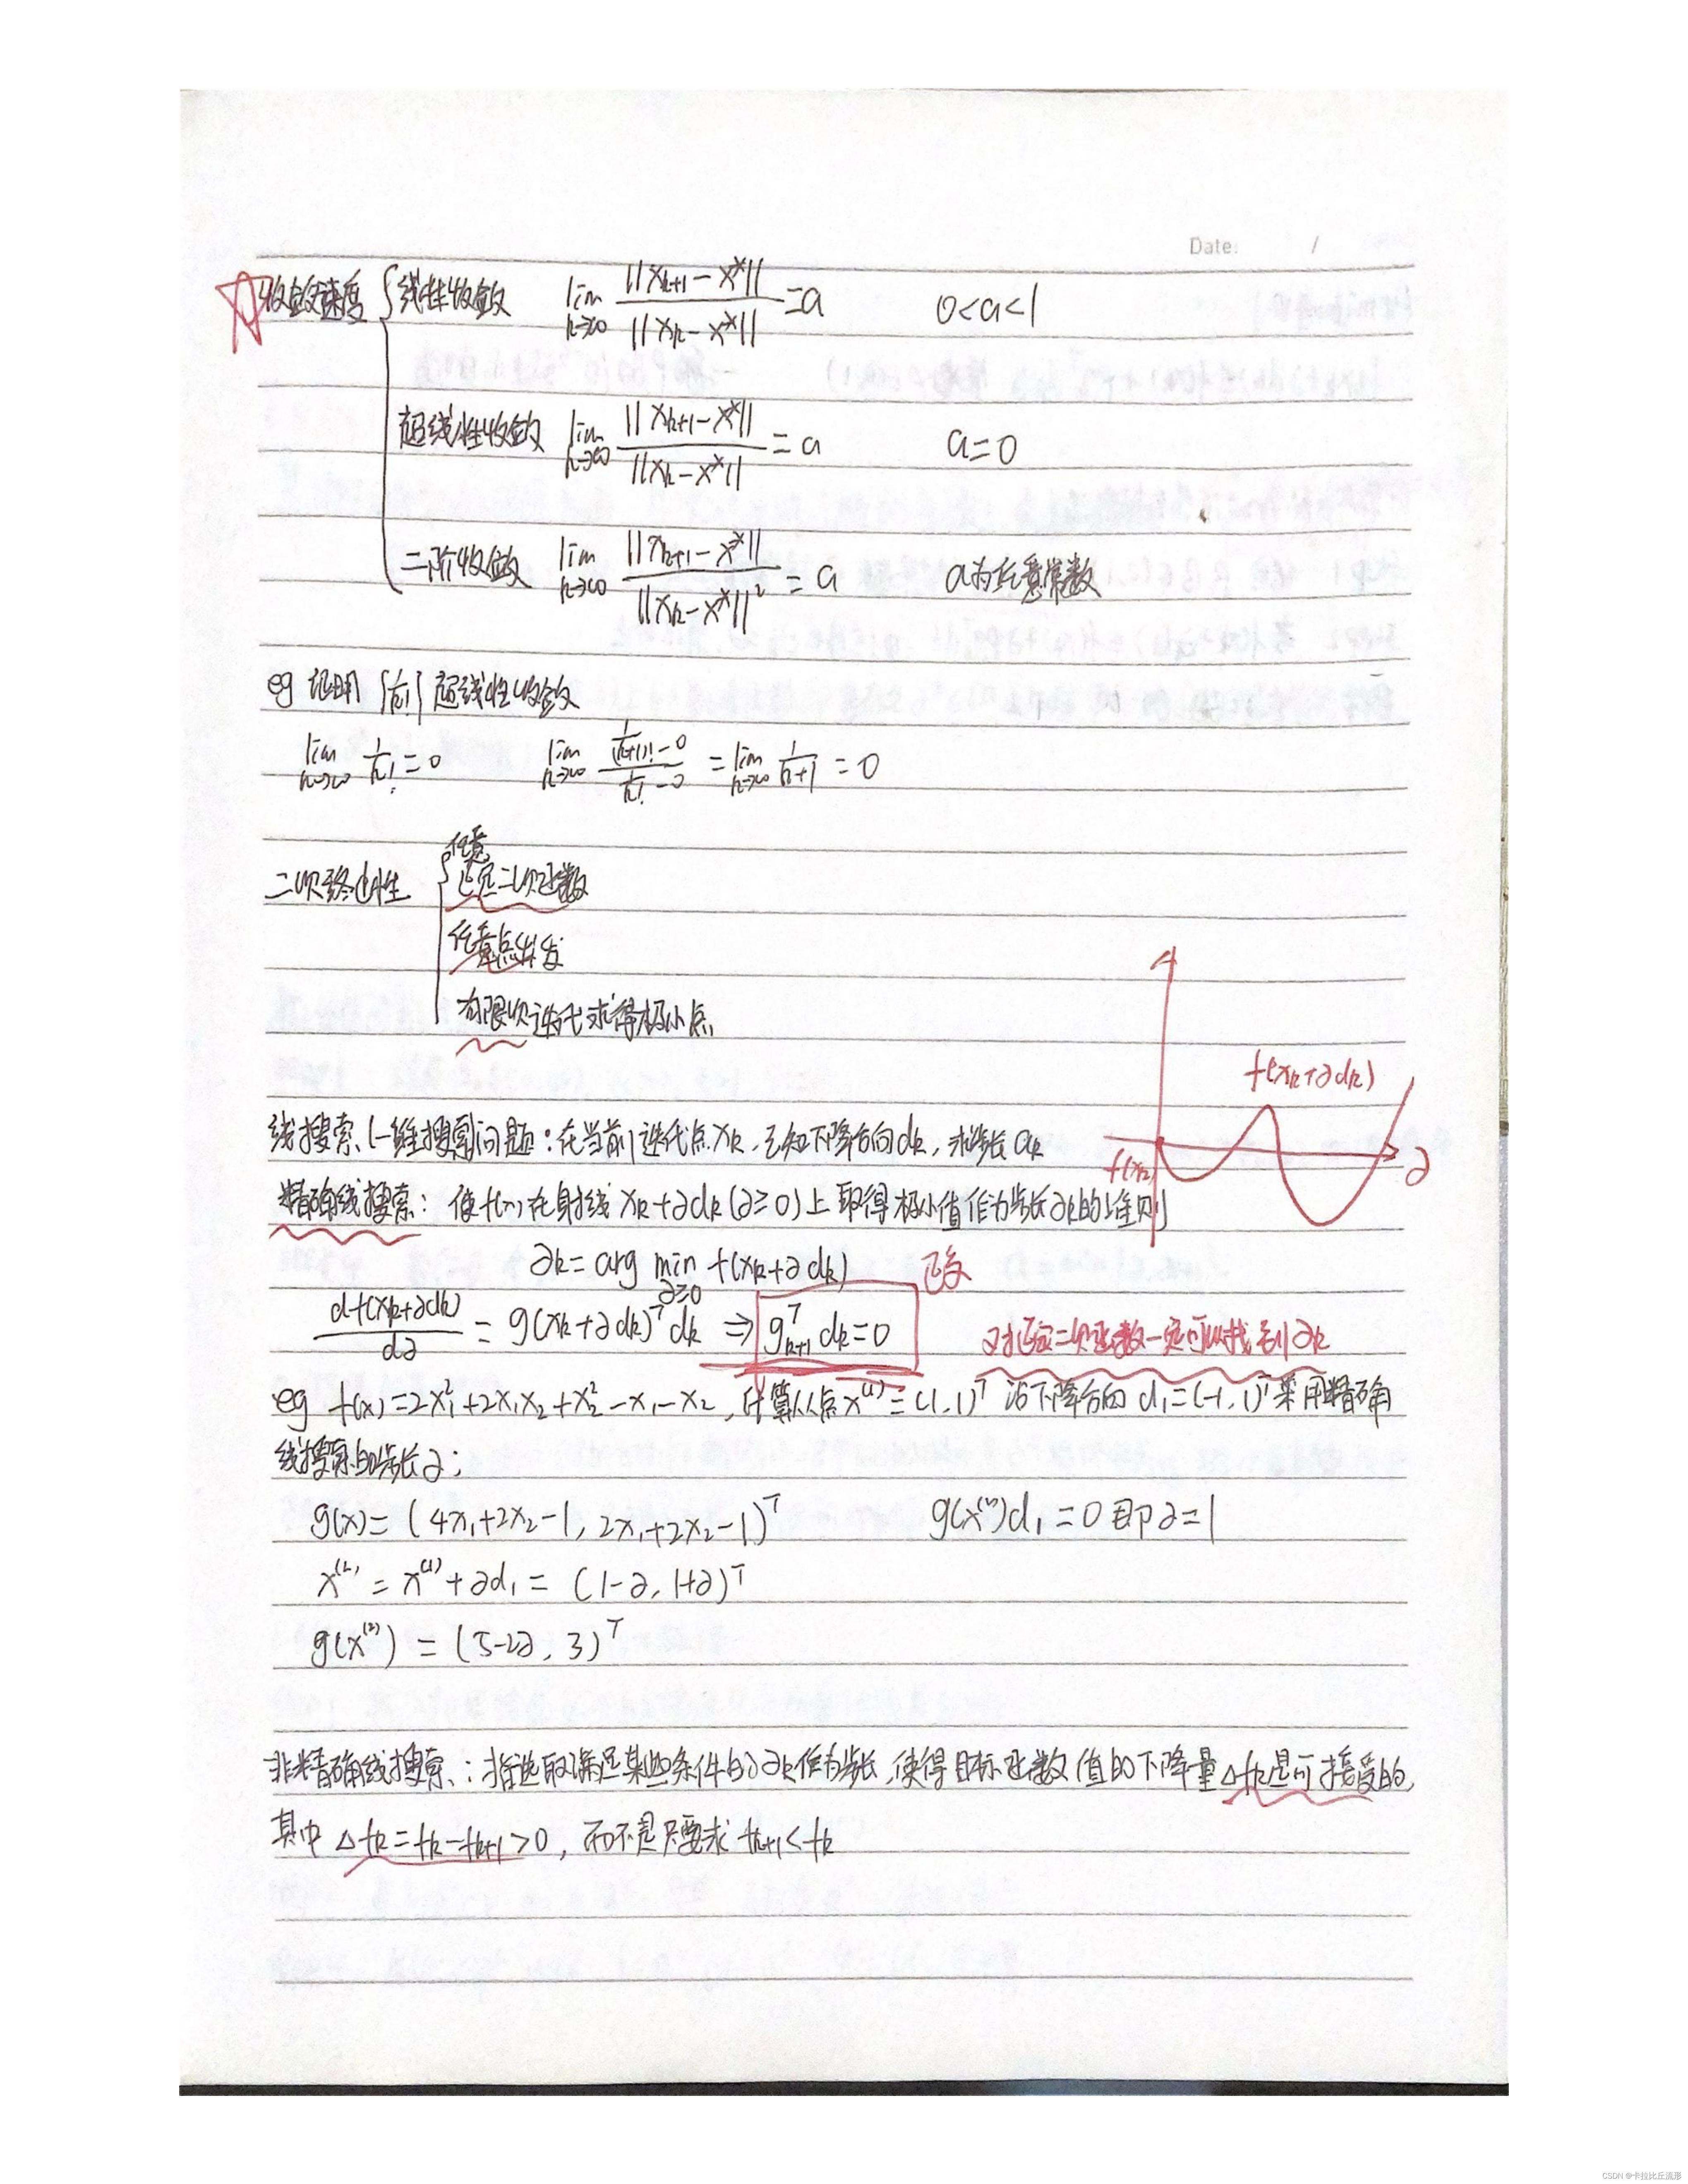 Date: /
收敛速度 { 线性收敛 lim_{k→∞} ||x_{k+1} - x*|| / ||x_k - x*|| = a 0<a<1
超线性收敛 lim_{k→∞} ||x_{k+1} - x*|| / ||x_k - x*|| = a a=0
二阶收敛 lim_{k→∞} ||x_{k+1} - x*|| / ||x_k - x*||² = a a为任意常数
eg 证明 {1/k!} 超线性收敛
lim_{k→∞} 1/k! = 0 lim_{k→∞} (1/(k+1)! - 0) / (1/k! - 0) = lim_{k→∞} 1/(k+1) = 0
二次终止性 { 任意
正定二次函数
任意点出发
有限次迭代求得极小点
f(x_k+αd_k)
f(x_k)
α
线搜索(一维搜索)问题:在当前迭代点x_k,已知下降方向d_k,求步长α_k
精确线搜索: 使f(x)在射线x_k+αd_k(α≥0)上取得极小值作为步长α_k的准则
α_k = arg min_{α≥0} f(x_k+αd_k)
正交
df(x_k+αd_k)/dα = g(x_k+αd_k)^T d_k ⇒ g_{k+1}^T d_k=0
对正定二次函数一定可以找到α_k
eg f(x)=2x₁²+2x₁x₂+x₂²-x₁-x₂,计算从点x^(1)=(1,1)^T 沿下降方向 d₁=(-1,1)^T采用精确
线搜索的步长α;
g(x)=(4x₁+2x₂-1, 2x₁+2x₂-1)^T g(x^(2))d₁=0即α=1
x^(2)=x^(1)+αd₁=(1-α,1+α)^T
g(x^(2))=(5-2α,3)^T
非精确线搜索:指选取满足某些条件的α_k作为步长,使得目标函数值的下降量△f_k是可接受的,
其中△f_k=f_k-f_{k+1}>0,而不是只要求f_{k+1}<f_k
CSDN @卡拉比丘流形